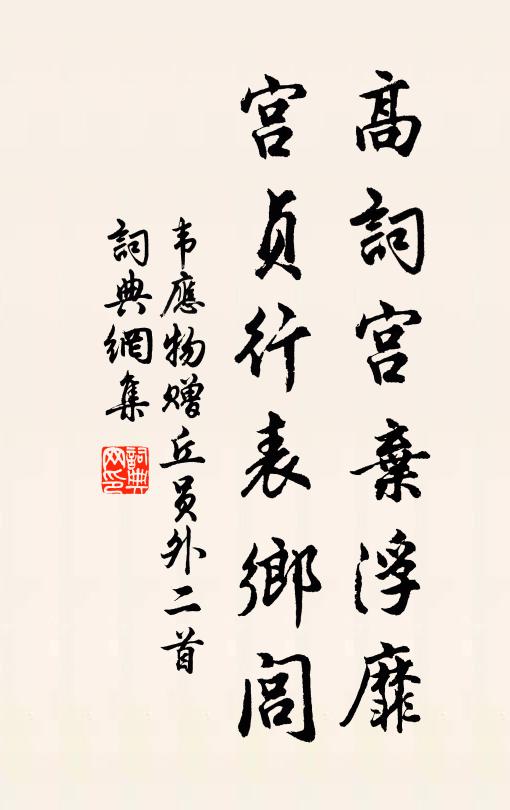 高詞宫棄浮靡
宫貞行表鄉閭
韦應物赠丘员外二首
詞典網集
詞典网印